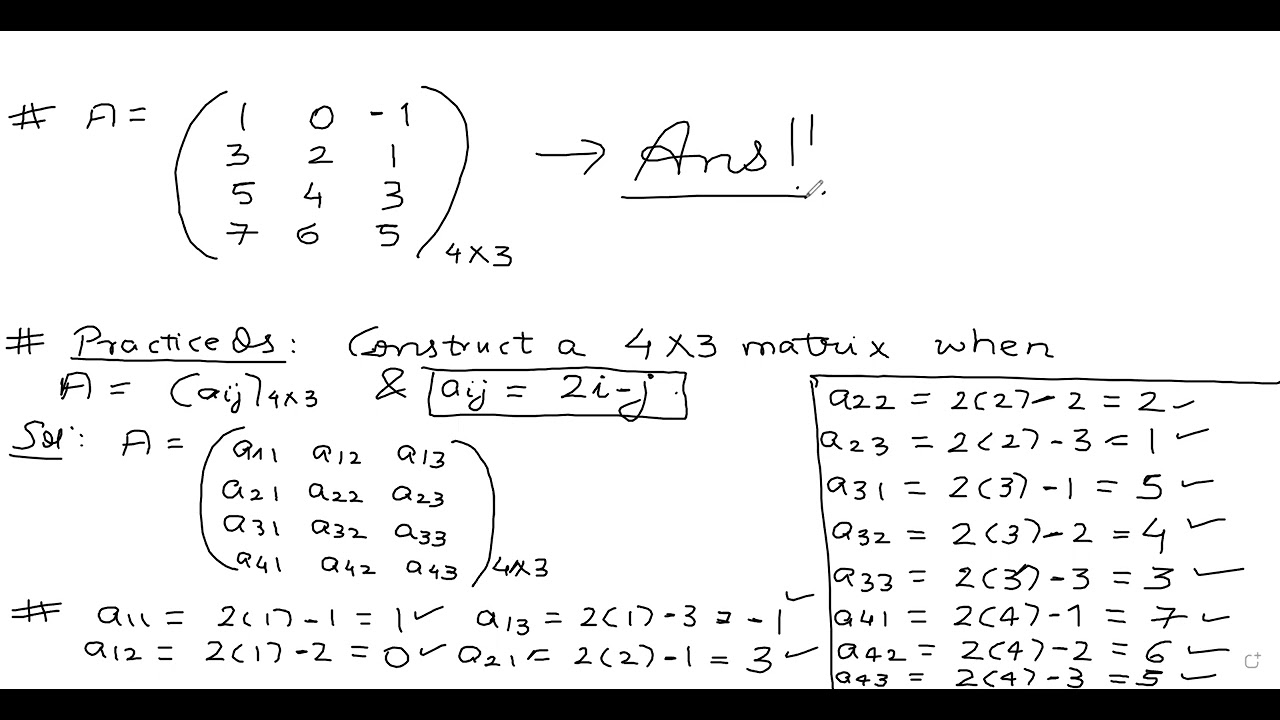 # A = ( 1 0 -1
3 2 1
5 4 3
7 6 5 ) 4×3
→ Ans!!
# Practice Qs: Construct a 4×3 matrix when
A = (aij)4×3 & aij = 2i-j.
Sol: A = ( a11 a12 a13
a21 a22 a23
a31 a32 a33
a41 a42 a43 ) 4×3
# a11 = 2(1)-1 = 1 ✓ a13 = 2(1)-3 = -1 ✓
a12 = 2(1)-2 = 0 ✓ a21 = 2(2)-1 = 3 ✓
a22 = 2(2)-2 = 2 ✓
a23 = 2(2)-3 = 1 ✓
a31 = 2(3)-1 = 5 ✓
a32 = 2(3)-2 = 4 ✓
a33 = 2(3)-3 = 3 ✓
a41 = 2(4)-1 = 7 ✓
a42 = 2(4)-2 = 6 ✓
a43 = 2(4)-3 = 5 ✓